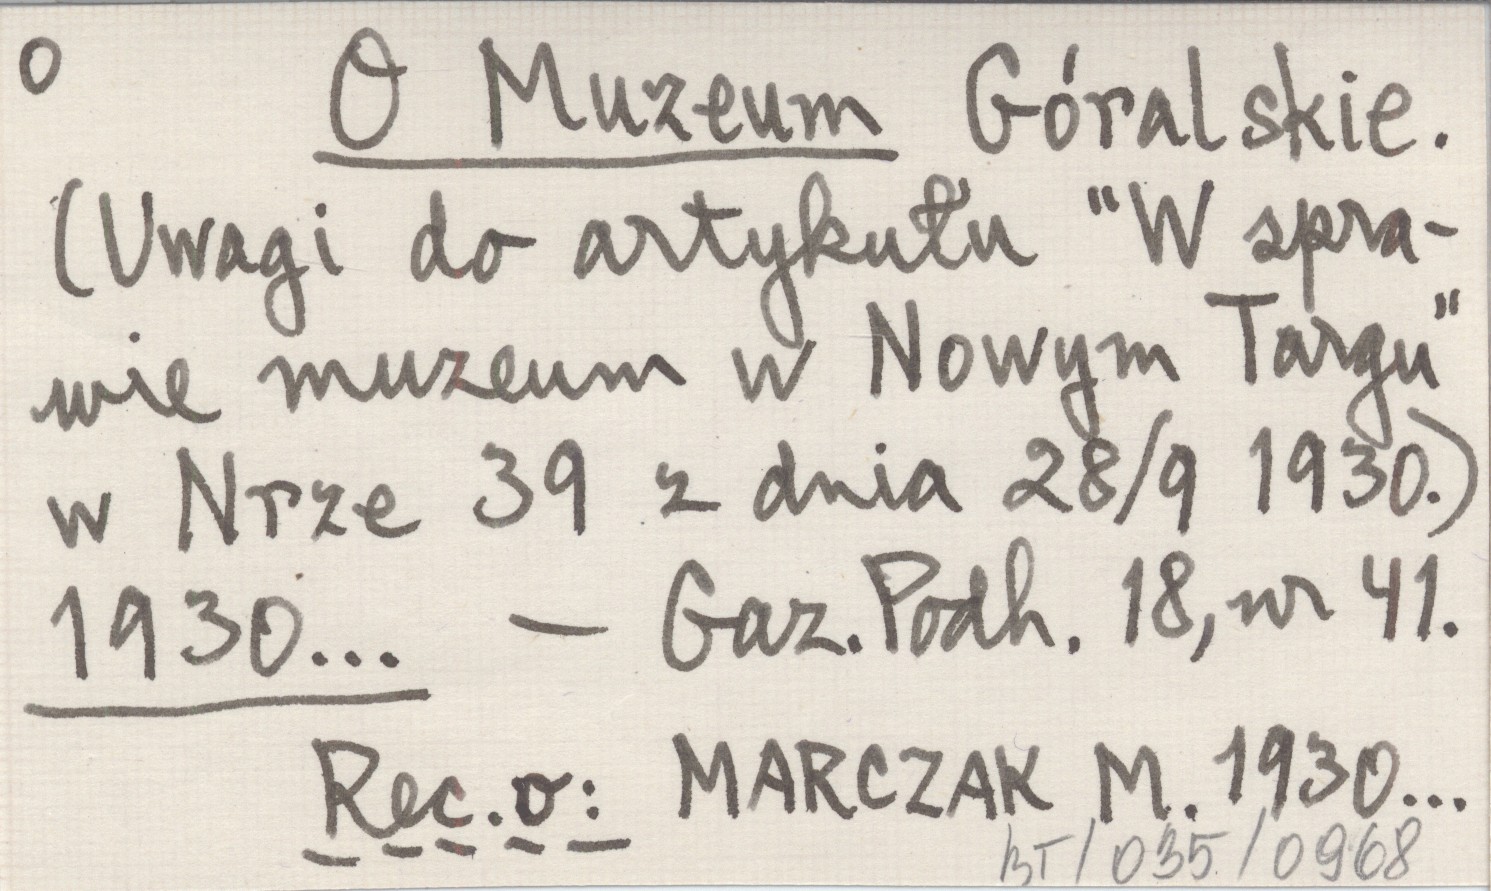 O O Muzeum Góralskie.
(Uwagi do artykułu "W spra-
wie muzeum w Nowym Targu"
w Nrze 39 z dnia 28/9 1930.)
1930... — Gaz. Podh. 18, nr 41.
Rec. o: MARCZAK M. 1930...
BT/035/0968